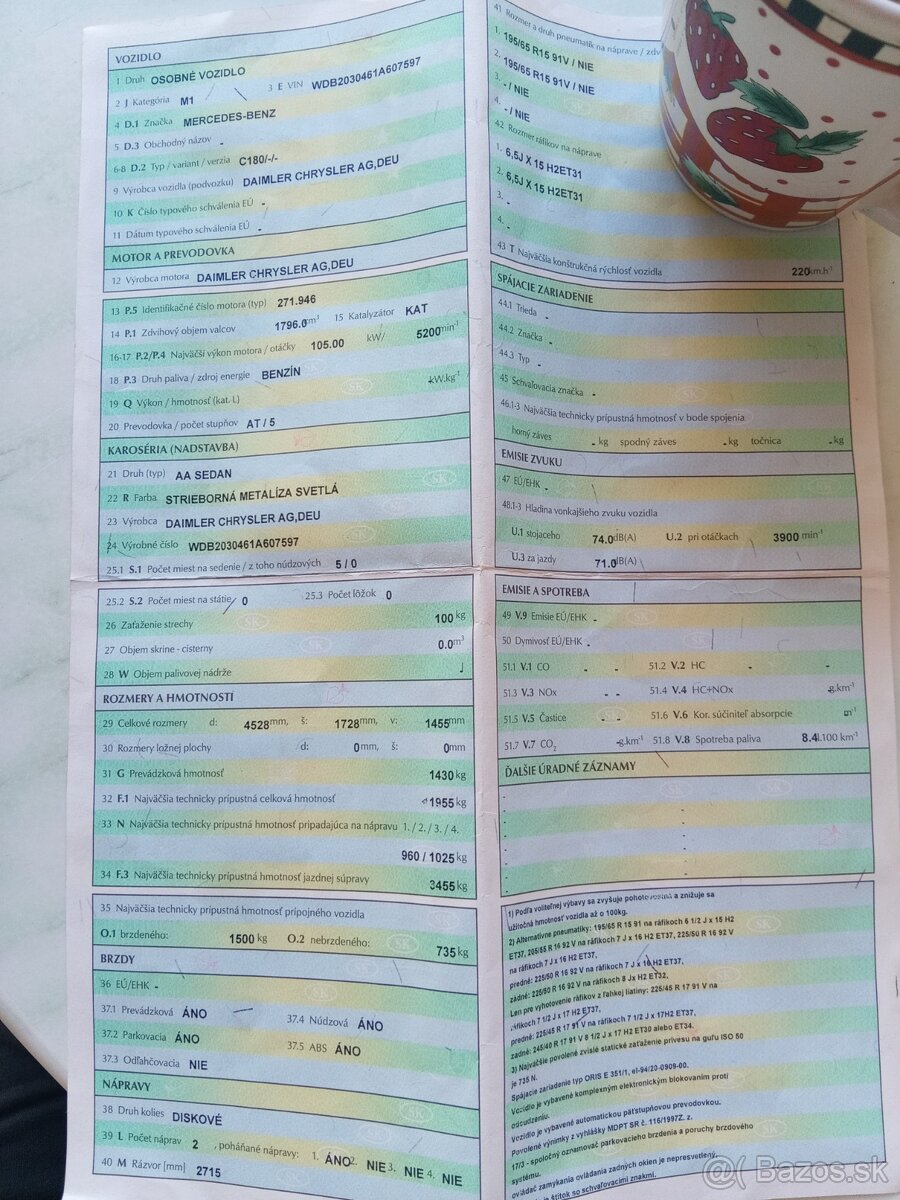 VOZIDLO
1 Druh OSOBNÉ VOZIDLO
2 J Kategória M1 3 E VIN WDB2030461A607597
4 D.1 Značka MERCEDES-BENZ
5 D.3 Obchodný názov -
6-8 D.2 Typ / variant / verzia C180/-/-
9 Výrobca vozidla (podvozku) DAIMLER CHRYSLER AG,DEU
10 K Číslo typového schválenia EÚ -
11 Dátum typového schválenia EÚ -
MOTOR A PREVODOVKA
12 Výrobca motora DAIMLER CHRYSLER AG,DEU
13 P.5 Identifikačné číslo motora (typ) 271.946
14 P.1 Zdvihový objem valcov 1796.0 cm³ 15 Katalyzátor KAT
16-17 P.2/P.4 Najväčší výkon motora / otáčky 105.00 kW/ 5200 min⁻¹
18 P.3 Druh paliva / zdroj energie BENZÍN
19 Q Výkon / hmotnosť (kat. L) - kW.kg⁻¹
20 Prevodovka / počet stupňov AT / 5
KAROSÉRIA (NADSTAVBA)
21 Druh (typ) AA SEDAN
22 R Farba STRIEBORNÁ METALÍZA SVETLÁ
23 Výrobca DAIMLER CHRYSLER AG,DEU
24 Výrobné číslo WDB2030461A607597
25.1 S.1 Počet miest na sedenie / z toho núdzových 5 / 0
25.2 S.2 Počet miest na státie 0 25.3 Počet lôžok 0
26 Zaťaženie strechy 100 kg
27 Objem skrine - cisterny 0.0 m³
28 W Objem palivovej nádrže
ROZMERY A HMOTNOSTI
29 Celkové rozmery d: 4528 mm, š: 1728 mm, v: 1455 mm
30 Rozmery ložnej plochy d: 0 mm, š: 0 mm
31 G Prevádzková hmotnosť 1430 kg
32 F.1 Najväčšia technicky prípustná celková hmotnosť 1955 kg
33 N Najväčšia technicky prípustná hmotnosť pripadajúca na nápravu 1. / 2. / 3. / 4.
960 / 1025 kg
34 F.3 Najväčšia technicky prípustná hmotnosť jazdnej súpravy 3455 kg
35 Najväčšia technicky prípustná hmotnosť prípojného vozidla
O.1 brzdeného: 1500 kg O.2 nebrzdeného: 735 kg
BRZDY
36 EÚ/EHK -
37.1 Prevádzková ÁNO 37.4 Núdzová ÁNO
37.2 Parkovacia ÁNO 37.5 ABS ÁNO
37.3 Odľahčovacia NIE
NÁPRAVY
38 Druh kolies DISKOVÉ
39 L Počet náprav 2 , poháňané nápravy: 1. ÁNO 2. NIE 3. NIE 4. NIE
40 M Rázvor [mm] 2715
41 Rozmer a druh pneumatík na náprave / zdv
1. 195/65 R15 91V / NIE
2. 195/65 R15 91V / NIE
3. - / NIE
4. - / NIE
42 Rozmer ráfikov na náprave
1. 6,5J X 15 H2ET31
2. 6,5J X 15 H2ET31
3. -
4. -
43 T Najväčšia konštrukčná rýchlosť vozidla 220 km.h⁻¹
SPÁJACIE ZARIADENIE
44.1 Trieda -
44.2 Značka -
44.3 Typ -
45 Schvaľovacia značka -
46.1-3 Najväčšia technicky prípustná hmotnosť v bode spojenia
horný záves - kg spodný záves - kg točnica - kg
EMISIE ZVUKU
47 EÚ/EHK -
48.1-3 Hladina vonkajšieho zvuku vozidla
U.1 stojaceho 74.0 dB(A) U.2 pri otáčkach 3900 min⁻¹
U.3 za jazdy 71.0 dB(A)
EMISIE A SPOTREBA
49 V.9 Emisie EÚ/EHK -
50 Dymivosť EÚ/EHK -
51.1 V.1 CO - - 51.2 V.2 HC - -
51.3 V.3 NOx - - 51.4 V.4 HC+NOx - g.km⁻¹
51.5 V.5 Častice - - 51.6 V.6 Kor. súčiniteľ absorpcie m⁻¹
51.7 V.7 CO₂ - g.km⁻¹ 51.8 V.8 Spotreba paliva 8.4 l.100 km⁻¹
ĎALŠIE ÚRADNÉ ZÁZNAMY
1) Podľa voliteľnej výbavy sa zvyšuje pohotovostná a znižuje sa
užitočná hmotnosť vozidla až o 100kg.
2) Alternatívne pneumatiky: 195/65 R 15 91 na ráfikoch 6 1/2 J x 15 H2
ET37, 205/55 R 16 92 V na ráfikoch 7 J x 16 H2 ET37, 225/50 R 16 92 V
na ráfikoch 7 J x 16 H2 ET37,
predné: 225/50 R 16 92 V na ráfikoch 7 J x 16 H2 ET37,
zadné: 225/50 R 16 92 V na ráfikoch 8 Jx H2 ET32,
Len pre vyhotovenie ráfikov z ľahkej liatiny: 225/45 R 17 91 V na
ráfikoch 7 1/2 J x 17 H2 ET37,
predné: 225/45 R 17 91 V na ráfikoch 7 1/2 J x 17H2 ET37,
zadné: 245/40 R 17 91 V 8 1/2 J x 17 H2 ET30 alebo ET34.
3) Najväčšie povolené zvislé statické zaťaženie prívesu na guľu ISO 50
je 735 N.
Spájacie zariadenie typ ORIS E 351/1, el-94/20-0909-00.
Vozidlo je vybavené komplexným elektronickým blokovaním proti
odcudzeniu.
Vozidlo je vybavené automatickou päťstupňovou prevodovkou.
Povolené výnimky z vyhlášky MDPT SR č. 116/1997Z. z.
17/3 - spoločný oznamovač parkovacieho brzdenia a poruchy brzdového
systému.
ovládač zamykania ovládania zadných okien je nepresvetlený.
je štítok so schvaľovacími znakmi.
Bazos.sk